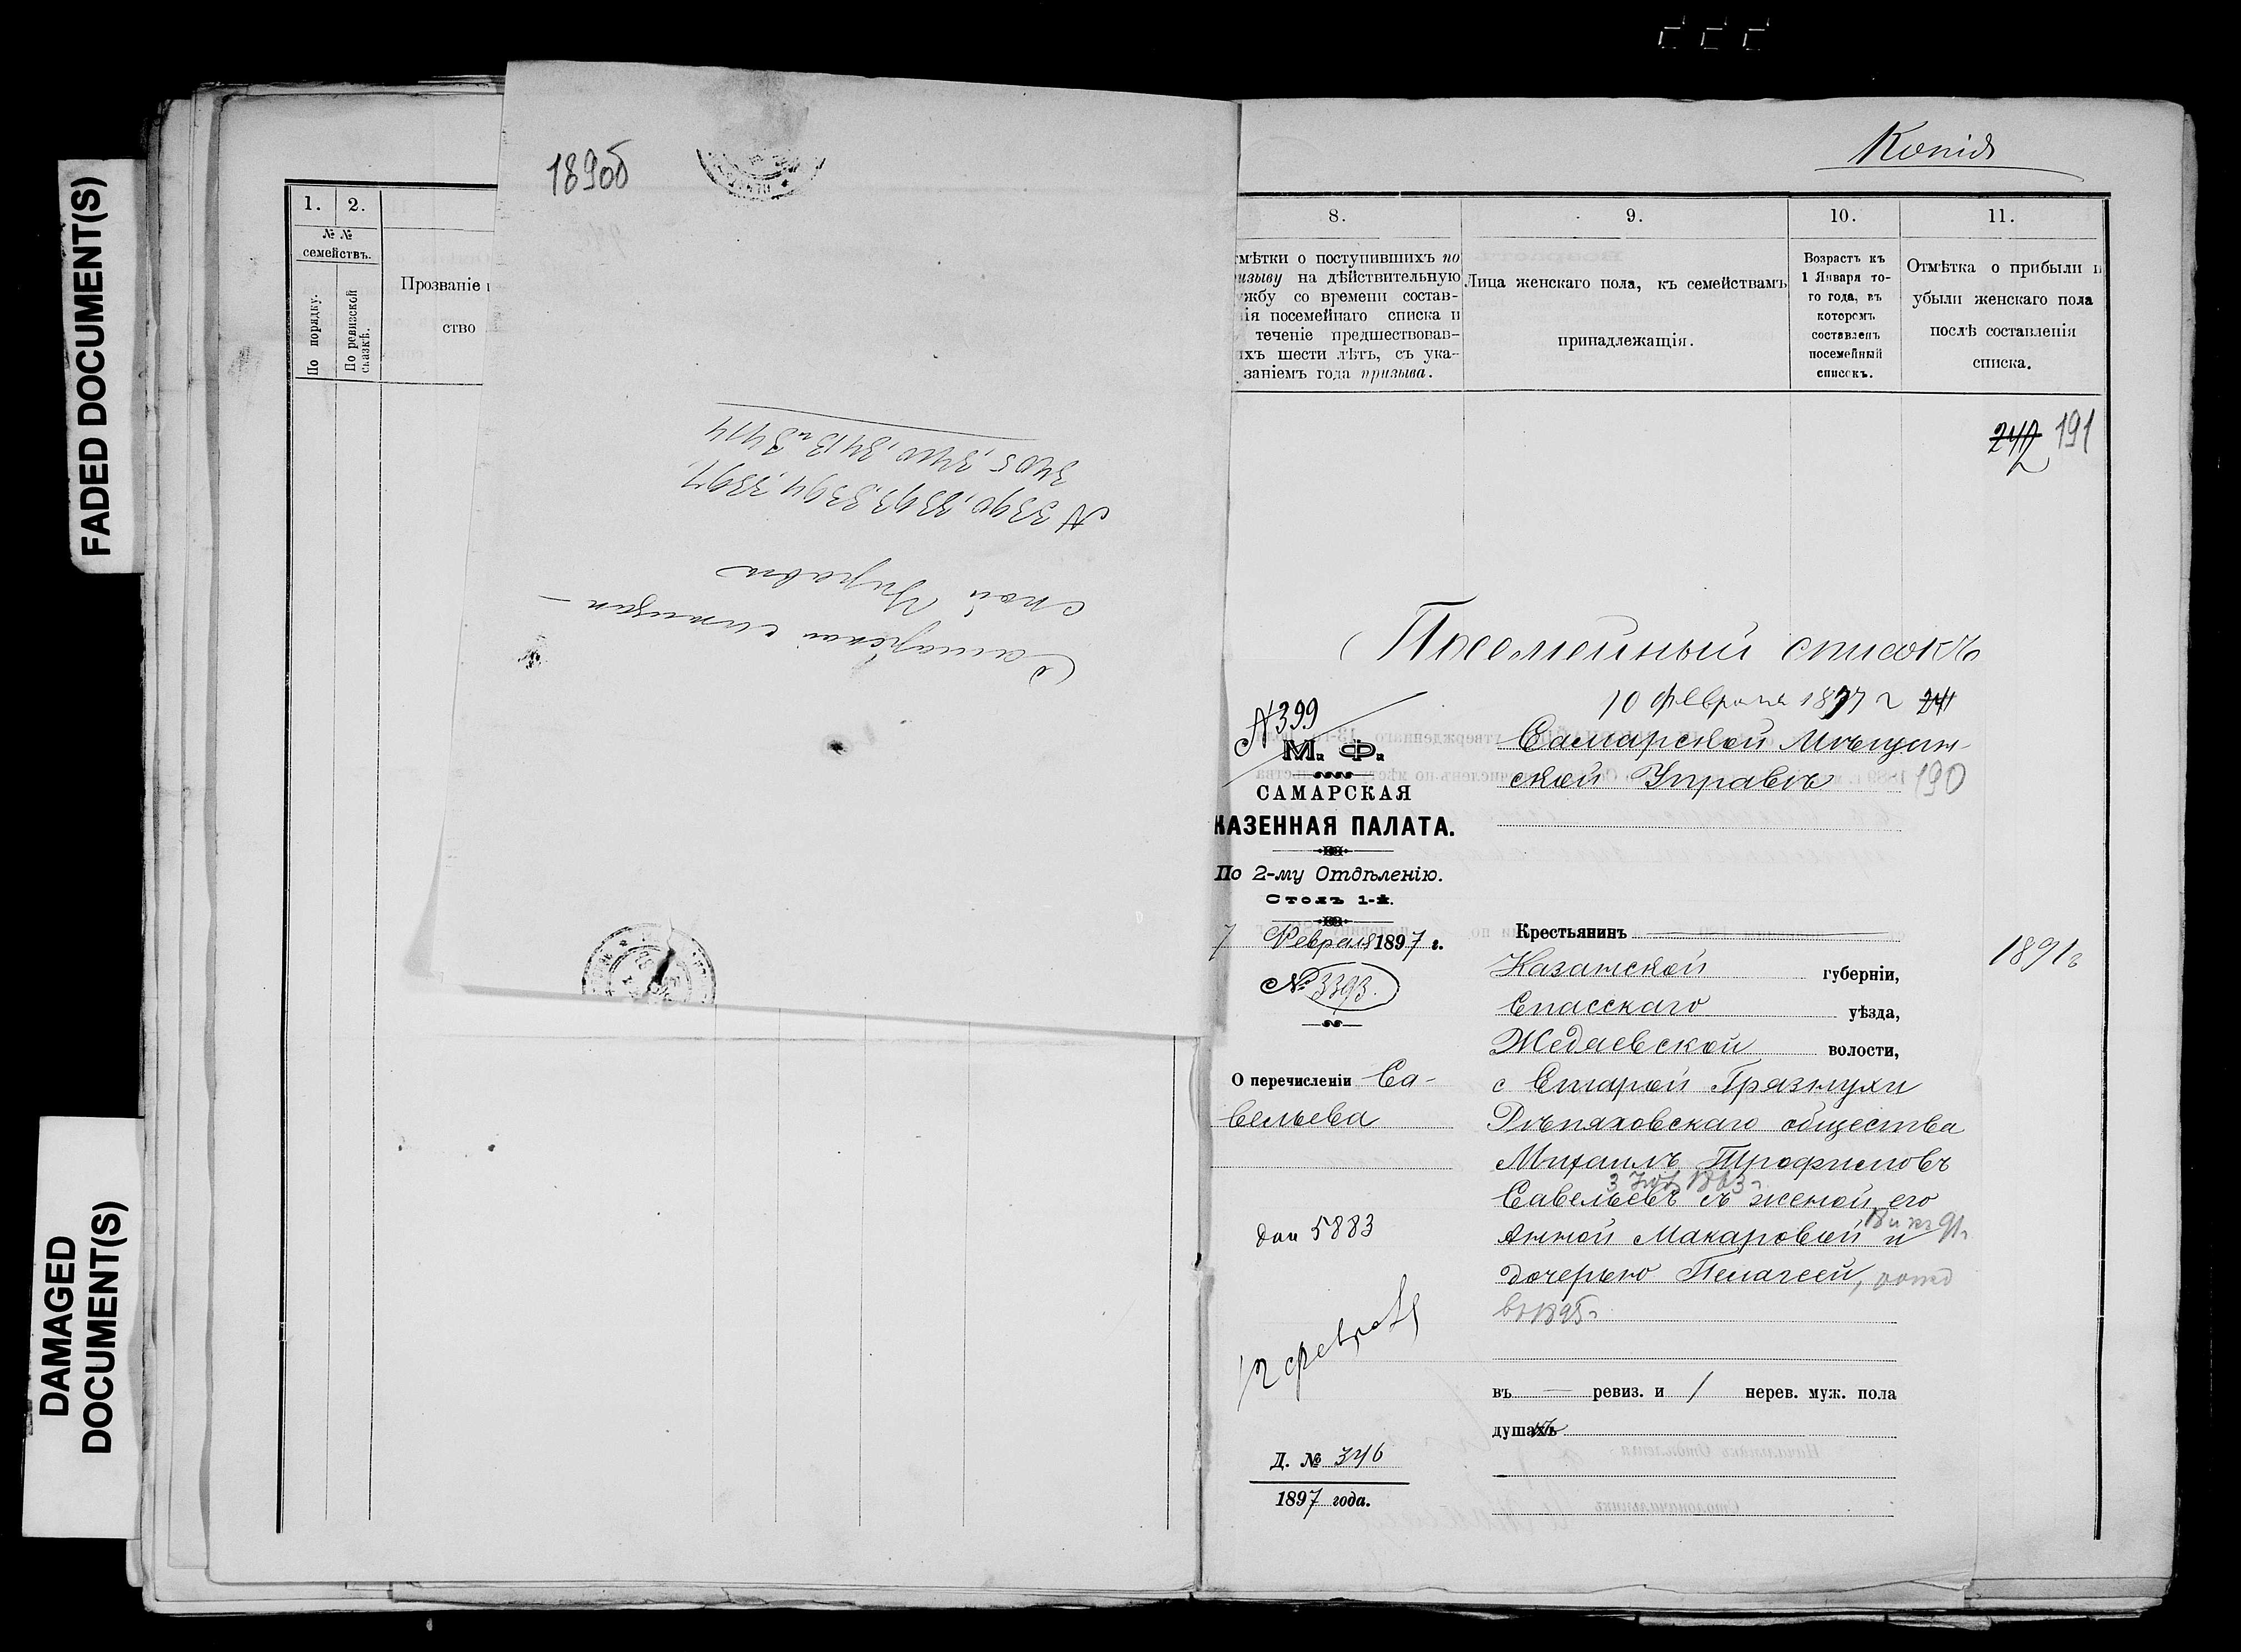 FADED DOCUMENT(S)
DAMAGED
DOCUMENT(S)
1.
2.
№ №
семействъ.
По порядку.
По ревизской
сказкѣ.
Прозваніе
ство
189об
Самарской мѣщан-
ской Управѣ
№ 3390, 3393, 3394, 3397,
3405, 3410, 3413 и 3414
Копія
8.
9.
10.
11.
тмѣтки о поступившихъ по
изыву на дѣйствительную
жбу со времени состав-
ія посемейнаго списка и
теченіе предшествовав-
ихъ шести лѣтъ, съ ука-
заніемъ года призыва.
Лица женскаго пола, къ семействамъ
принадлежащія.
Возрастъ къ
1 Января то-
го года, въ
которомъ
составленъ
посемейный
списокъ.
Отмѣтка о прибыли и
убыли женскаго пола
послѣ составленія
списка.
191
Посемейный списокъ
10 февраля 1897 г
№ 399
М. Ф.
САМАРСКАЯ
КАЗЕННАЯ ПАЛАТА.
По 2-му Отдѣленію.
Столъ 1-й.
7 Февраля 1897 г.
№ 3393.
О перечисленіи Са-
вельева
5883
12 февраля
Д. № 346
1897 года.
Самарской Мѣщан-
ской Управѣ
190
Крестьянинъ
Казанской губерніи,
Спасскаго уѣзда,
Жедаевской волости,
с Старой Грязнухи
Рѣпяховскаго общества
Михаилъ Трофимовъ
Савельевъ съ женой его
Анной Макаровой и
дочерью Пелагеей,
въ 1895 г
въ — ревиз. и 1 нерев. муж. пола
душахъ